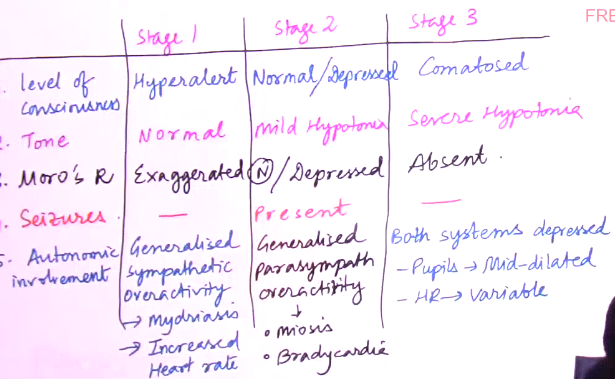 FRE
Stage 1 Stage 2 Stage 3
1. level of consciousness Hyperalert Normal/Depressed Comatosed
2. Tone Normal Mild Hypotonia Severe Hypotonia
3. Moro's R Exaggerated N/Depressed Absent.
4. Seizures. — Present —
5. Autonomic involvement
Generalised
sympathetic
overactivity
→ Mydriasis
→ Increased
Heart rate
Generalised
parasympath
overactivity
↓
• Miosis
• Bradycardia
Both systems depressed
- Pupils → Mid-dilated
- HR → Variable